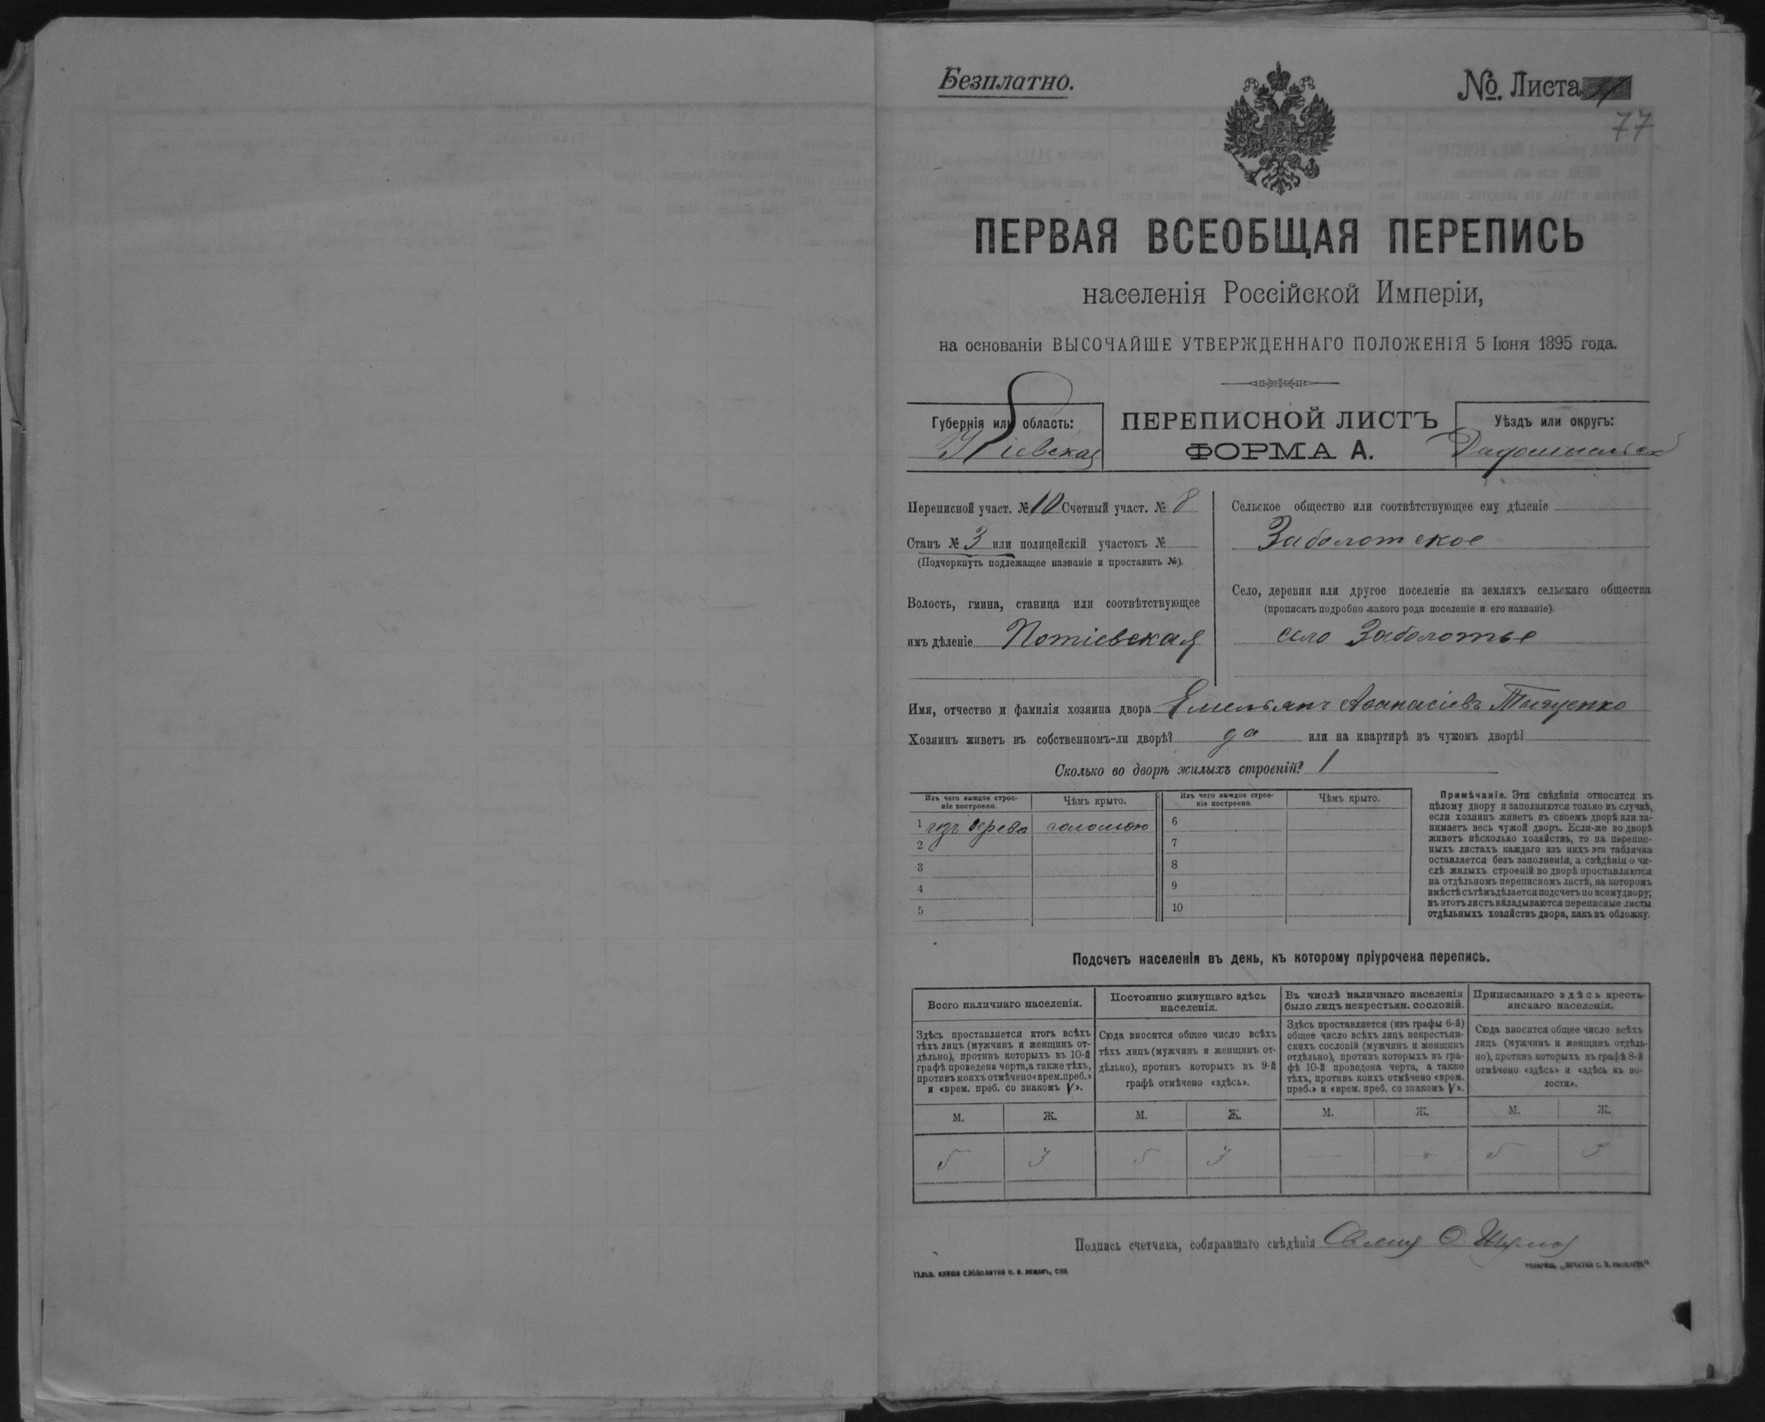 Безплатно.
№. Листа
77
ПЕРВАЯ ВСЕОБЩАЯ ПЕРЕПИСЬ
населенія Россійской Имперіи,
на основаніи ВЫСОЧАЙШЕ УТВЕРЖДЕННАГО ПОЛОЖЕНІЯ 5 Іюня 1895 года.
Губернія или область:
Кіевская
ПЕРЕПИСНОЙ ЛИСТЪ
ФОРМА А.
Уѣздъ или округъ:
Переписной участ. № 10 Счетный участ. № 8
Станъ № 3 или полицейскій участокъ №
(Подчеркнуть подлежащее названіе и проставить №).
Волость, гмина, станица или соотвѣтствующее
имъ дѣленіе Потіевская
Сельское общество или соотвѣтствующее ему дѣленіе
Заболотское
Село, деревня или другое поселеніе на земляхъ сельскаго общества
(прописать подробно какого рода поселеніе и его названіе)
село Заболотье
Имя, отчество и фамилія хозяина двора Емельянъ Аѳанасіевъ Тыщенко
Хозяинъ живетъ въ собственномъ-ли дворѣ? да или на квартирѣ въ чужомъ дворѣ?
Сколько во дворѣ жилыхъ строеній? 1
Изъ чего каждое строе-
ніе построено.
Чѣмъ крыто.
Изъ чего каждое строе-
ніе построено.
Чѣмъ крыто.
1 изъ дерева соломою
2
3
4
5
6
7
8
9
10
Примѣчаніе. Эти свѣдѣнія относятся къ
цѣлому двору и заполняются только въ случаѣ,
если хозяинъ живетъ въ своемъ дворѣ или за-
нимаетъ весь чужой дворъ. Если-же во дворѣ
живетъ нѣсколько хозяйствъ, то на перепис-
ныхъ листахъ каждаго изъ нихъ эта табличка
оставляется безъ заполненія, а свѣдѣнія о чи-
слѣ жилыхъ строеній во дворѣ проставляются
на отдѣльномъ переписномъ листѣ, на которомъ
вмѣстѣ съ тѣмъ дѣлается подсчетъ по всему двору;
въ этотъ листъ вкладываются переписные листы
отдѣльныхъ хозяйствъ двора, какъ въ обложку.
Подсчетъ населенія въ день, къ которому пріурочена перепись.
Всего наличнаго населенія.
Здѣсь проставляется итогъ всѣхъ
тѣхъ лицъ (мужчинъ и женщинъ от-
дѣльно), противъ которыхъ въ 10-й
графѣ проведена черта, а также тѣхъ,
противъ коихъ отмѣчено «врем. преб.»
и «врем. преб. со знакомъ V».
Постоянно живущаго здѣсь
населенія.
Сюда вносится общее число всѣхъ
тѣхъ лицъ (мужчинъ и женщинъ от-
дѣльно), противъ которыхъ въ 9-й
графѣ отмѣчено «здѣсь».
Въ числѣ наличнаго населенія
было лицъ некрестьян. сословій.
Здѣсь проставляется (изъ графы 6-й)
общее число всѣхъ лицъ некрестьян-
скихъ сословій (мужчинъ и женщинъ
отдѣльно), противъ которыхъ въ гра-
фѣ 10-й проведена черта, а также
тѣхъ, противъ коихъ отмѣчено «врем.
преб.» и «врем. преб. со знакомъ V».
Приписаннаго здѣсь кресть-
янскаго населенія.
Сюда вносится общее число всѣхъ
лицъ (мужчинъ и женщинъ отдѣль-
но), противъ которыхъ въ графѣ 8-й
отмѣчено «здѣсь» и «здѣсь въ во-
лости».
М. Ж. М. Ж. М. Ж. М. Ж.
5 3 5 3 — — 5 3
Подпись счетчика, собиравшаго свѣдѣнія